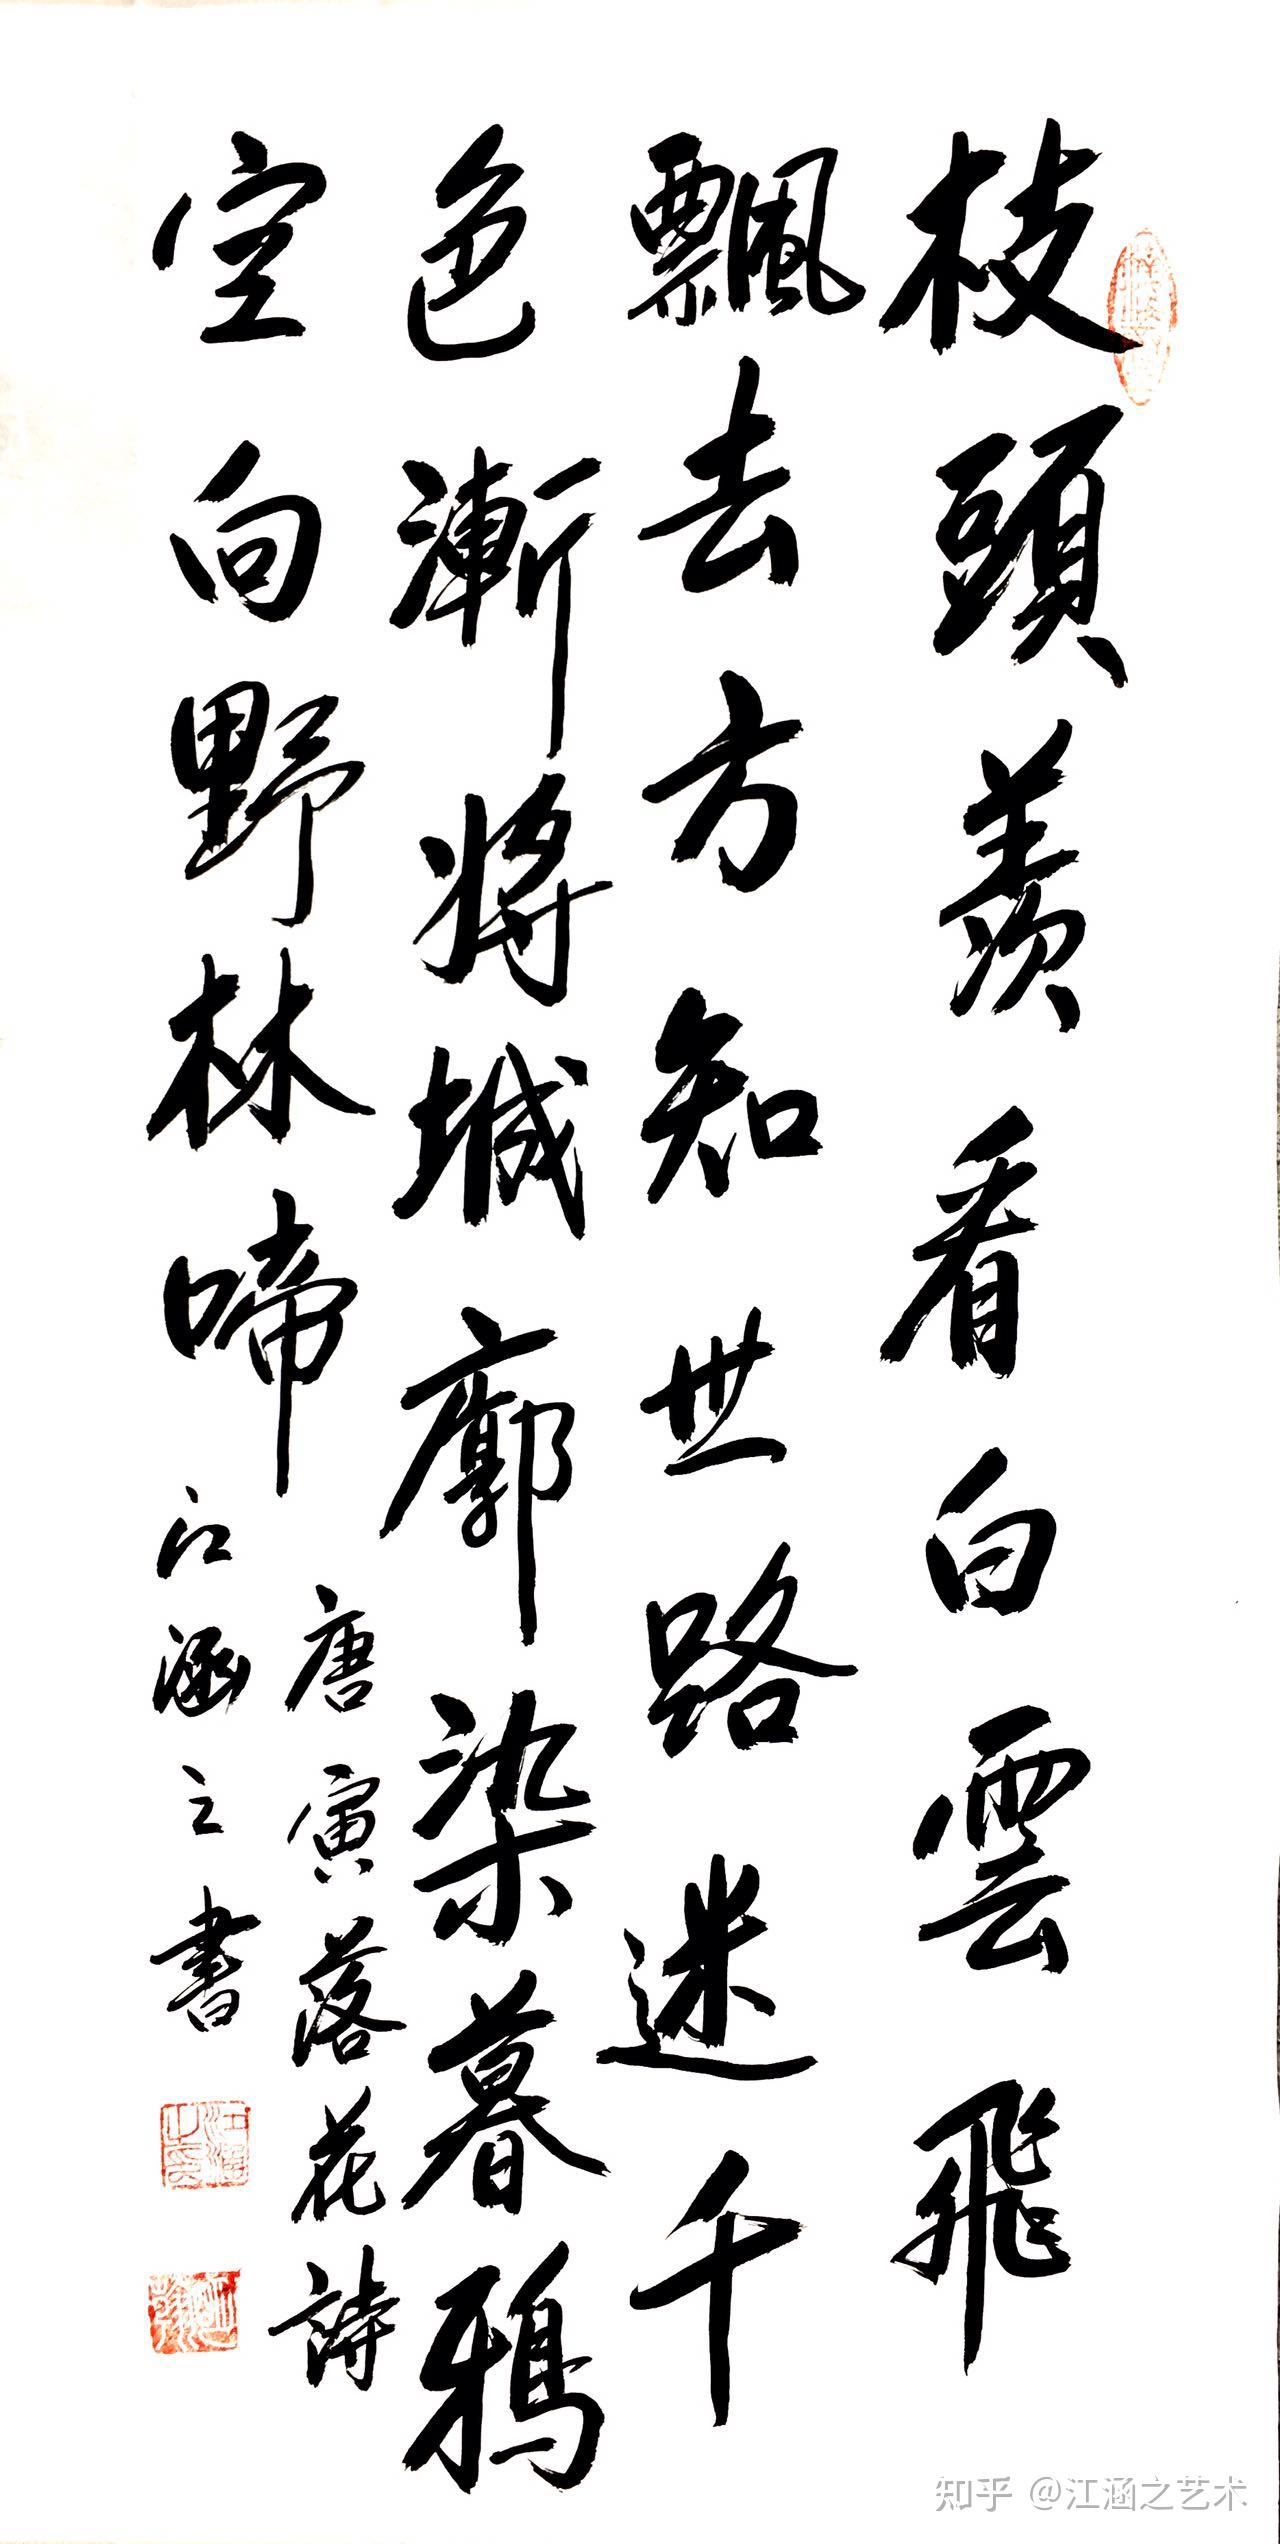 枝頭羡看白雲飛
飄去方知世路迷千
色漸將城廓染暮鴉
空向野林啼
唐寅落花詩
江涵之書
知乎 @江涵之艺术